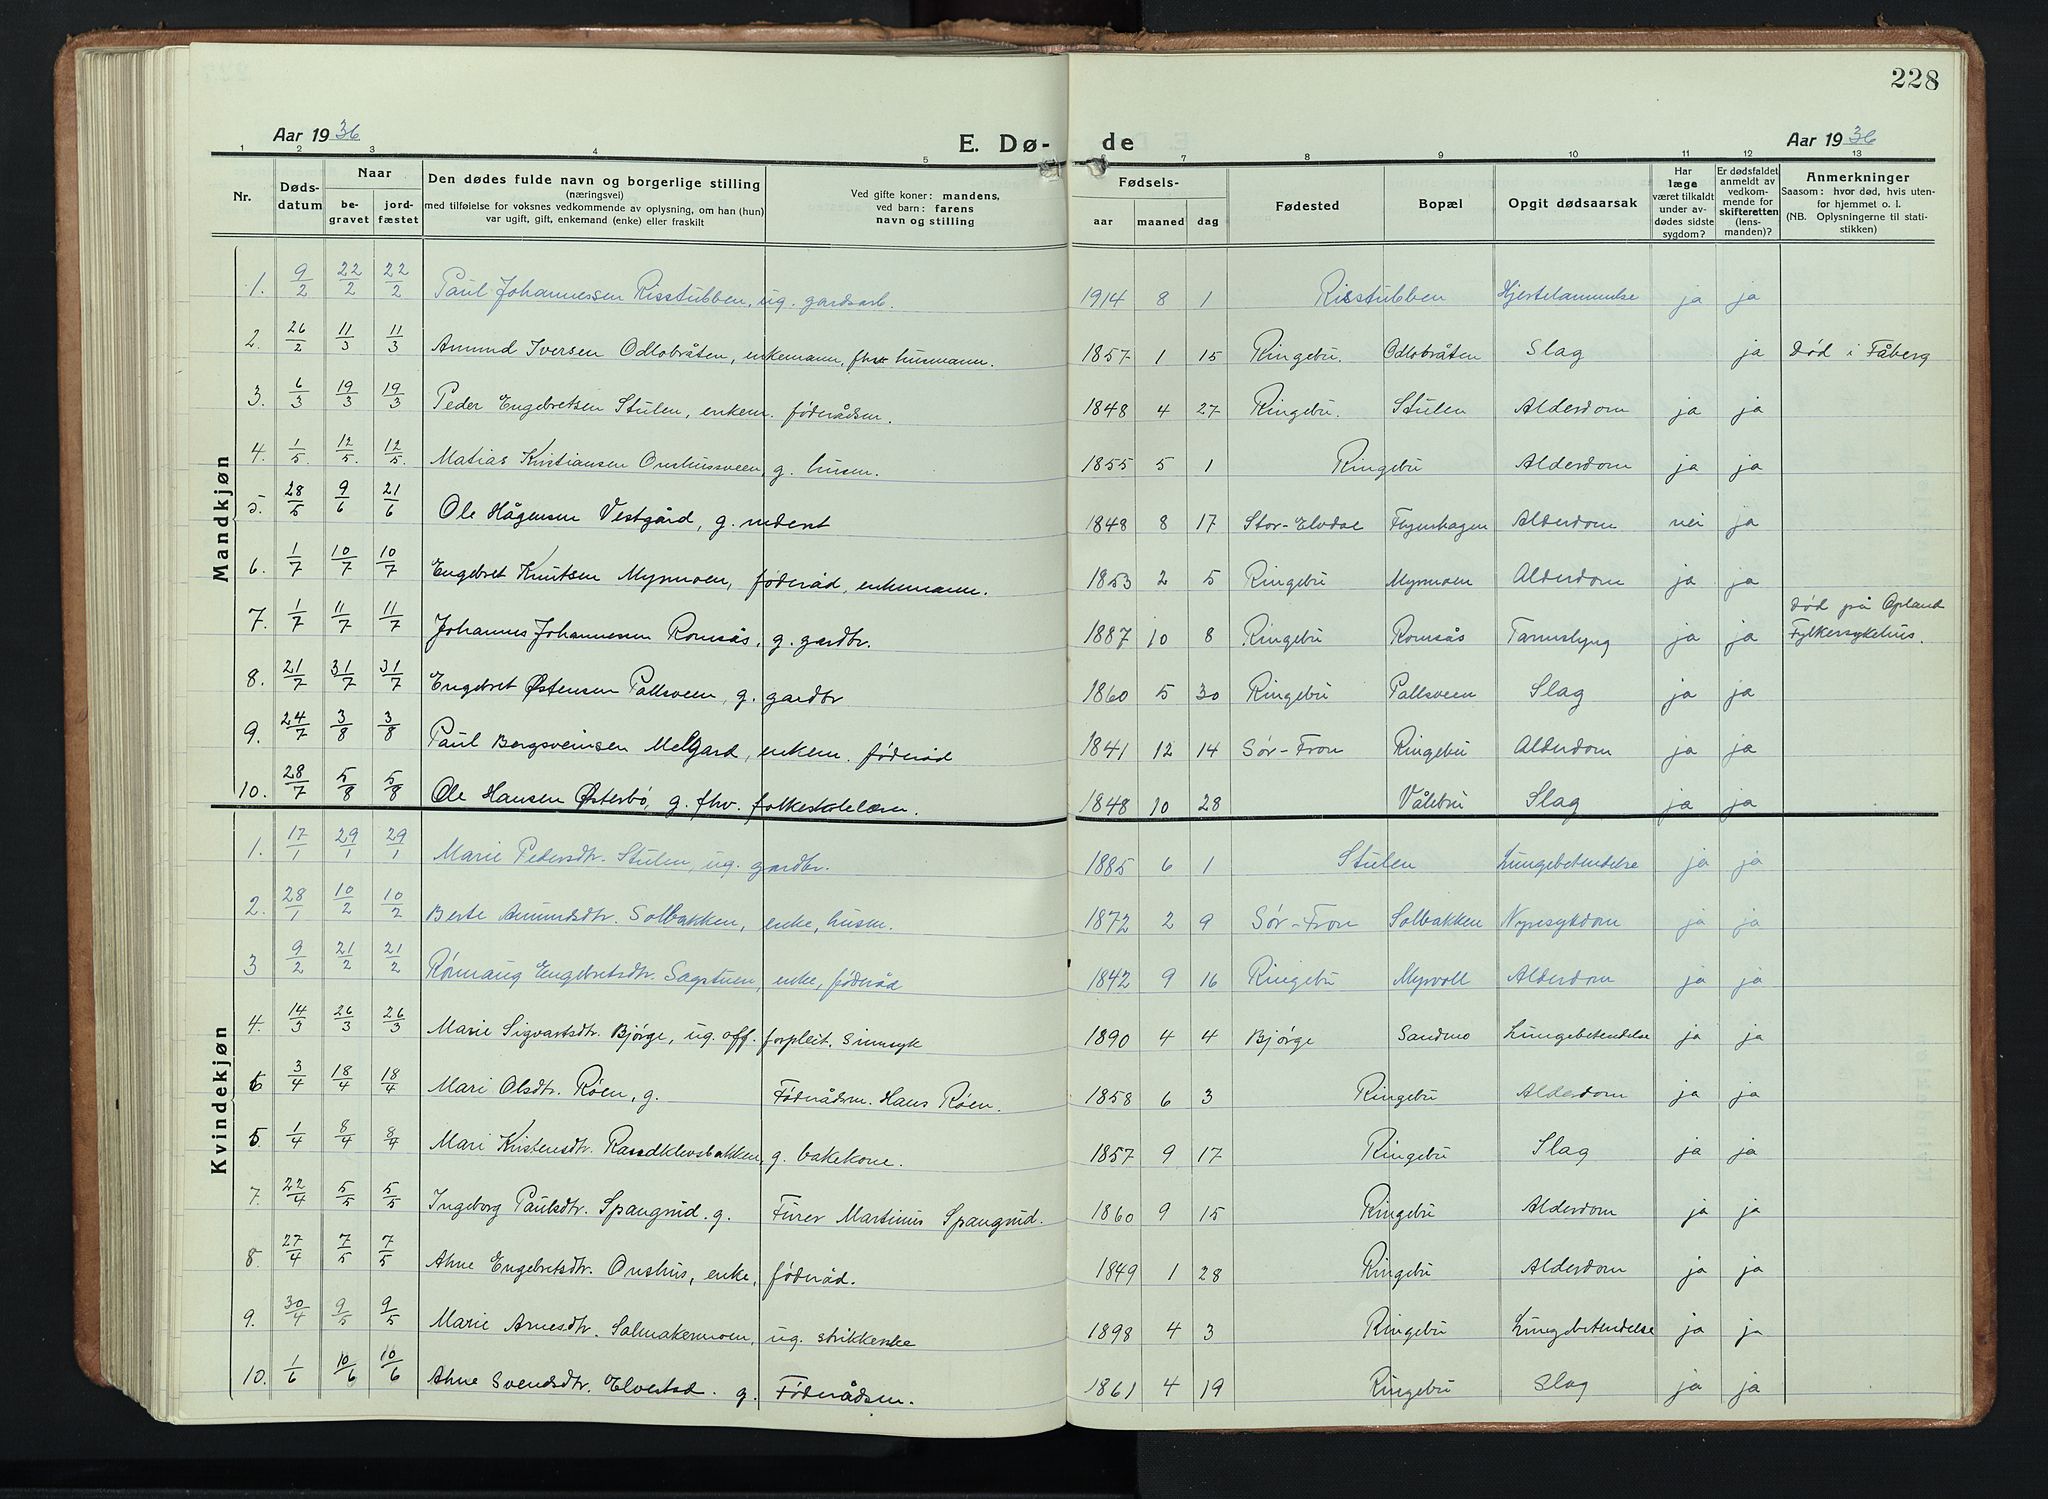 228
Aar 1936
E. Dø-
de
Aar 1936
1 2 3 4 5 6 7 8 9 10 11 12 13
Nr.
Døds-
datum
Naar
be-
gravet
jord-
fæstet
Den dødes fulde navn og borgerlige stilling
(næringsvei)
med tilføielse for voksnes vedkommende av oplysning, om han (hun)
var ugift, gift, enkemand (enke) eller fraskilt
Ved gifte koner: mandens,
ved barn: farens
navn og stilling
Fødsels-
aar maaned dag
Fødested
Bopæl
Opgit dødsaarsak
Har
læge
været tilkaldt
under av-
dødes sidste
sygdom?
Er dødsfaldet
anmeldt av
vedkom-
mende for
skifteretten
(lens-
manden)?
Anmerkninger
Saasom: hvor død, hvis uten-
for hjemmet o. l.
(NB. Oplysningerne til stati-
stikken)
Mandkjøn
1. 9/2 22/2 22/2 Paul Johannessen Risstubben, ug. gardsarb. 1914 8 1 Risstubben Hjertelammelse ja ja
2. 26/2 11/3 11/3 Amund Iversen Odlobråten, enkemann, fhv. husmann. 1857 1 15 Ringebu. Odlobråten Slag ja Død i Fåberg
3. 6/3 19/3 19/3 Peder Engebretsen Stulen, enkem. føderådsm. 1848 4 27 Ringebu. Stulen Alderdom ja ja
4. 1/5 12/5 12/5 Matias Kristiansen Onshussveen, g. husm. 1855 5 1 Ringebu Alderdom ja ja
5. 28/5 9/6 21/6 Ole Hågensen Vestgård, g. 1848 8 17 Stor-Elvdal Alderdom nei ja
6. 1/7 10/7 10/7 Engebret Knutsen Myrmoen, føderåd, enkemann. 1853 2 5 Ringebu Myrmoen Alderdom ja ja
7. 1/7 11/7 11/7 Johannes Johannessen Romsås, g. gardbr. 1887 10 8 Ringebu Romsås Tarmslyng ja ja Død på Opland
Fylkessykehus.
8. 21/7 31/7 31/7 Engebret Østensen Pallsveen, g. gardbr 1860 5 30 Ringebu Pallsveen Slag ja ja
9. 24/7 3/8 3/8 Paul Bergsveinsen Melgard, enkem. føderåd 1841 12 14 Sør-Fron Ringebu Alderdom ja ja
10. 28/7 5/8 5/8 Ole Hansen Østerbø, g. fhv. folkeskolelærer. 1848 10 28 Vålebru Slag ja ja
Kvindekjøn
1. 17/1 29/1 29/1 Marie Pedersdtr. Stulen, ug. gardbr. 1885 6 1 Stulen Lungebetendelse ja ja
2. 28/1 10/2 10/2 Berte Amundsdtr. Solbakken, enke, huskn. 1872 2 9 Sør-Fron Solbakken Nyresykdom ja ja
3 9/2 21/2 21/2 Rønnaug Engebretsdtr. Sagstuen, enke, føderåd 1842 9 16 Ringebu Myrvoll Alderdom ja ja
4. 14/3 26/3 26/3 Marie Sigvartsdtr. Bjørge, ug. off. forpleit. Sinnsyk 1890 4 4 Bjørge Sandmo Lungebetendelse ja ja
6 3/4 18/4 18/4 Mari Olsdtr. Røen, g. Føderådsm. Hans Røen. 1858 6 3 Ringebu Alderdom ja ja
5. 1/4 8/4 8/4 Mari Kristensdtr. Randklevsbakken, g. bakekone. 1857 9 17 Ringebu Slag ja ja
7. 22/4 5/5 5/5 Ingeborg Paulsdtr. Spangrud. g. Furer Martinus Spangrud. 1860 9 15 Ringebu Alderdom ja ja
8. 27/4 7/5 7/5 Ahne Engebretsdtr. Onshus, enke, føderåd. 1849 1 28 Ringebu Alderdom ja ja
9. 30/4 9/5 9/5 Marie Arnesdtr. Salmakermoen, ug. strikkerske 1898 4 3 Ringebu Lungebetendelse ja ja
10. 1/6 10/6 10/6 Ahne Svendsdtr. Elvestad. g. Føderådsm. 1861 4 19 Ringebu Slag ja ja